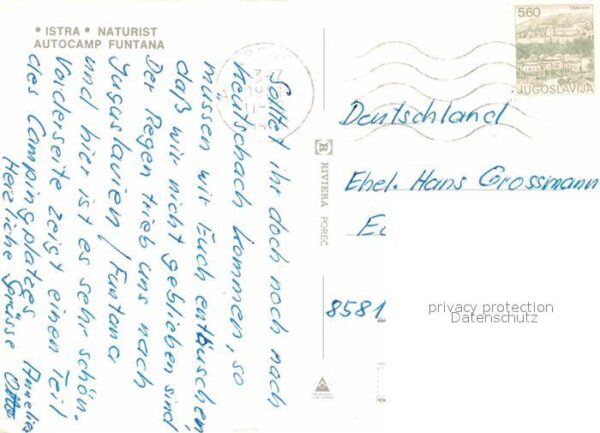 • ISTRA • NATURIST
AUTOCAMP FUNTANA
Solltet ihr doch noch nach
Keutschach kommen, so
müssen wir Euch enttäuschen,
daß wir nicht geblieben sind.
Der Regen trieb uns nach
Jugoslavien / Funtana
und hier ist es sehr schön.
Vorderseite zeigt einen Teil
des Campingplatzes
Herzliche Grüsse Otto
Annelies
RIVIERA POREČ
5.60
JUGOSLAVIJA
Deutschland
Ehel. Hans Grossmann
8581
privacy protection
Datenschutz